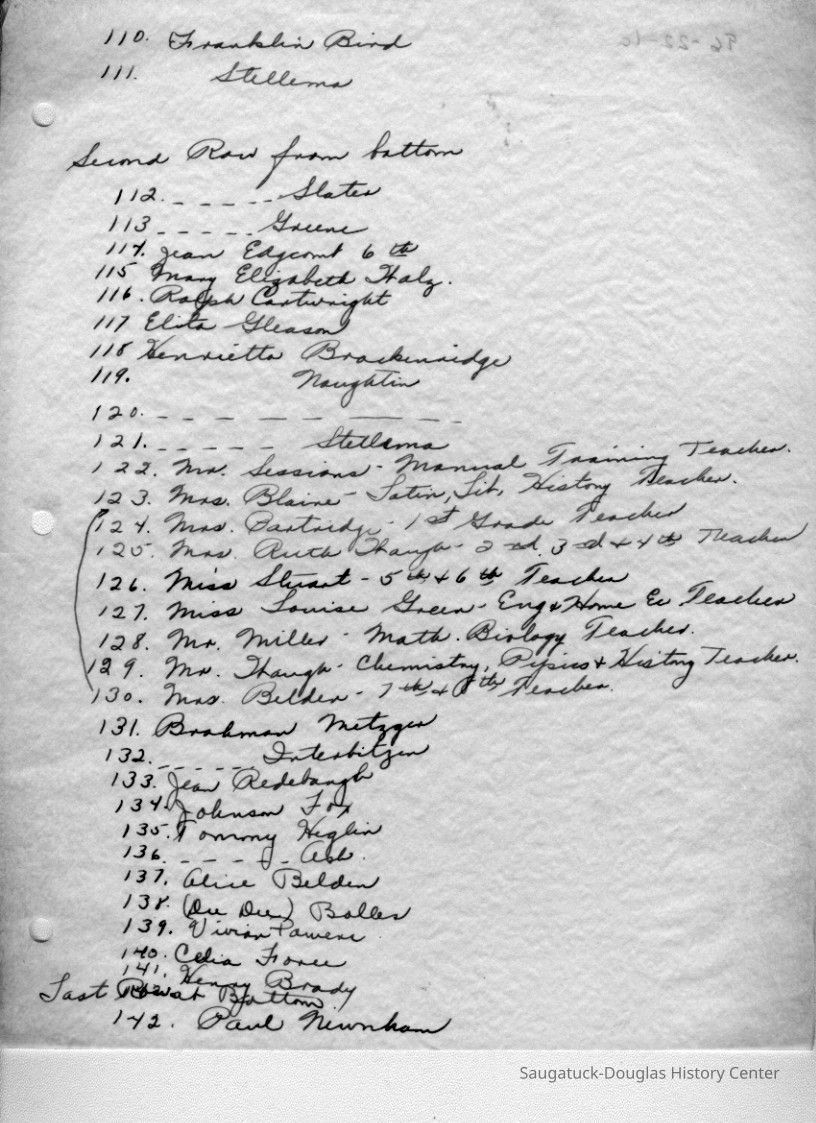 110. Franklin Bird
111. Stellema
Second Row from bottom
112. _ _ _ _ _ Slater
113 _ _ _ _ _ Greene
114. Jean Edgcomb 6 th
115 Mary Elizabeth
116. Ralph Cartwright
117 Elita Gleason
118 Henrietta Brackenridge
119. Naughtin
120. _ _ _ _ _ _
121. _ _ _ _ _ Stellema
122. Mr. Sessions - Manual Training Teacher.
123. Mrs. Blaine - Latin, Lit, History Teacher.
124. Mrs. Partridge - 1st Grade Teacher
125. Mrs. Ruth Waugh - 2nd, 3rd & 4th Teacher
126. Miss Stuart - 5th & 6th Teacher
127. Miss Louise Green - Eng & Home Ec Teacher
128. Mr. Miller - Math. Biology Teacher.
129. Mr. Waugh - Chemistry, Pysics & History Teacher.
130. Mrs. Belden - 7th & 8th Teacher.
131. Brahman Metzger
132. _ _ _ _ _ Interbitzen
133. Jean Redebaugh
134. Johnson Fox
135. Tommy Heglin
136. _ _ _ _ _ Ash.
137. Alice Belden
138. (Dee Dee) Bolles
139. Vivian Powers
140. Celia Force
141. Henry Brady
Last Row at Bottom.
142. Paul Newnham
Saugatuck-Douglas History Center